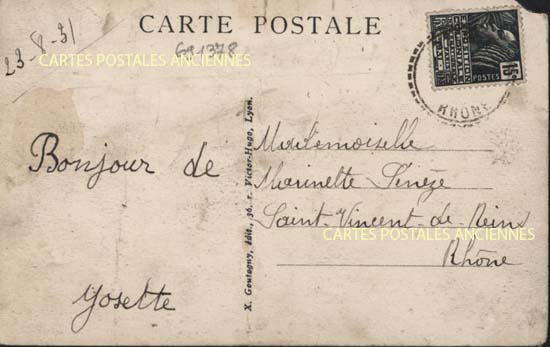 CARTE POSTALE
691378
23-8-31
CARTES POSTALES ANCIENNES
Bonjour de
Yosette
X. Goutagny, édit., 36, r. Victor-Hugo, Lyon.
Mademoiselle
Marinette
Saint-Vincent de Reins
CARTES POSTALES ANCIENNES
Rhône
POSTES
RHÔNE